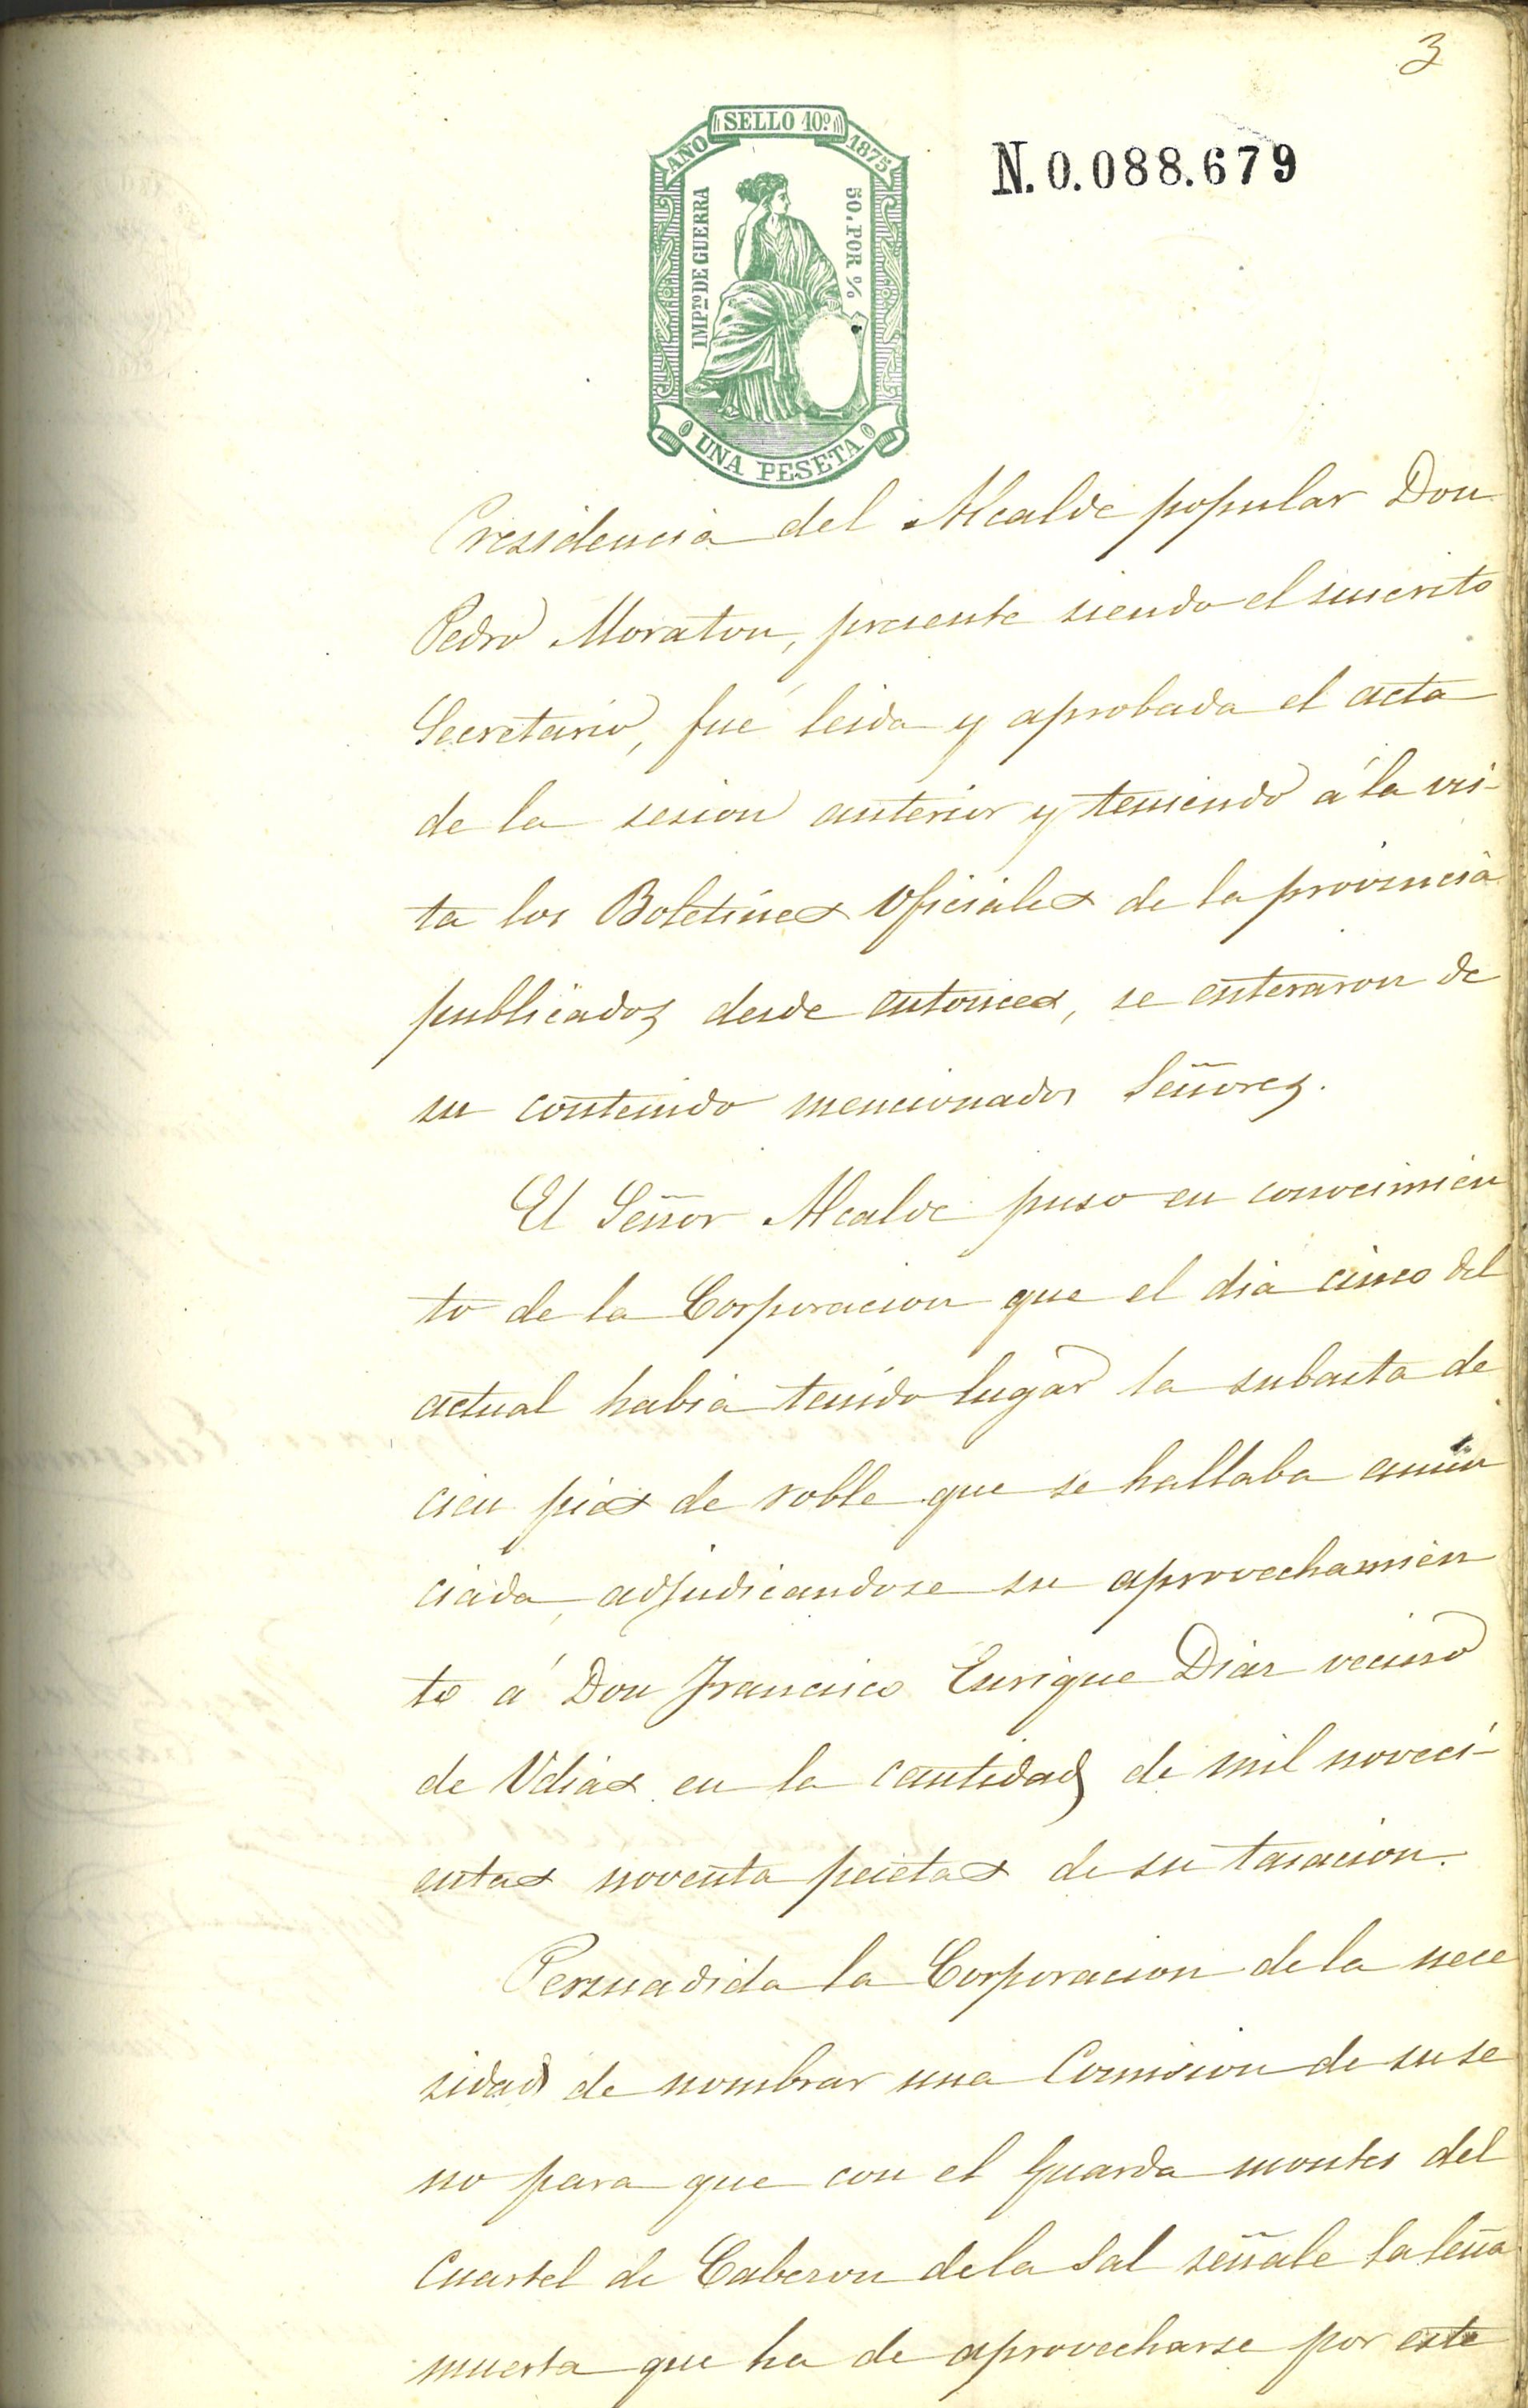 3
SELLO 10º
AÑO 1875
N.0.088.679
IMPTO DE GUERRA
50 POR %
UNA PESETA
Presidencia del Alcalde popular Don
Pedro Moraton, presente siendo el suscrito
Secretario, fué leida y aprobada el acta
de la sesion anterior y teniendo á la vis-
ta los Boletines Oficiales de la provincia
publicados desde entonces, se enteraron de
su contenido mencionados Señores.
El Señor Alcalde puso en conocimien
to de la Corporacion que el dia cinco del
actual habia tenido lugar la subasta de
cien pies de roble que se hallaba anun
ciada, adjudicandose su aprovechamien
to á Don Francisco Enrique Diaz vecino
de Udias en la cantidad de mil noveci-
entas noventa pesetas de su tasacion.
Persuadida la Corporacion de la nece
sidad de nombrar una Comision de su se
no para que con el Guarda montes del
Cuartel de Cabezon de la Sal señale la leña
muerta que ha de aprovecharse por este